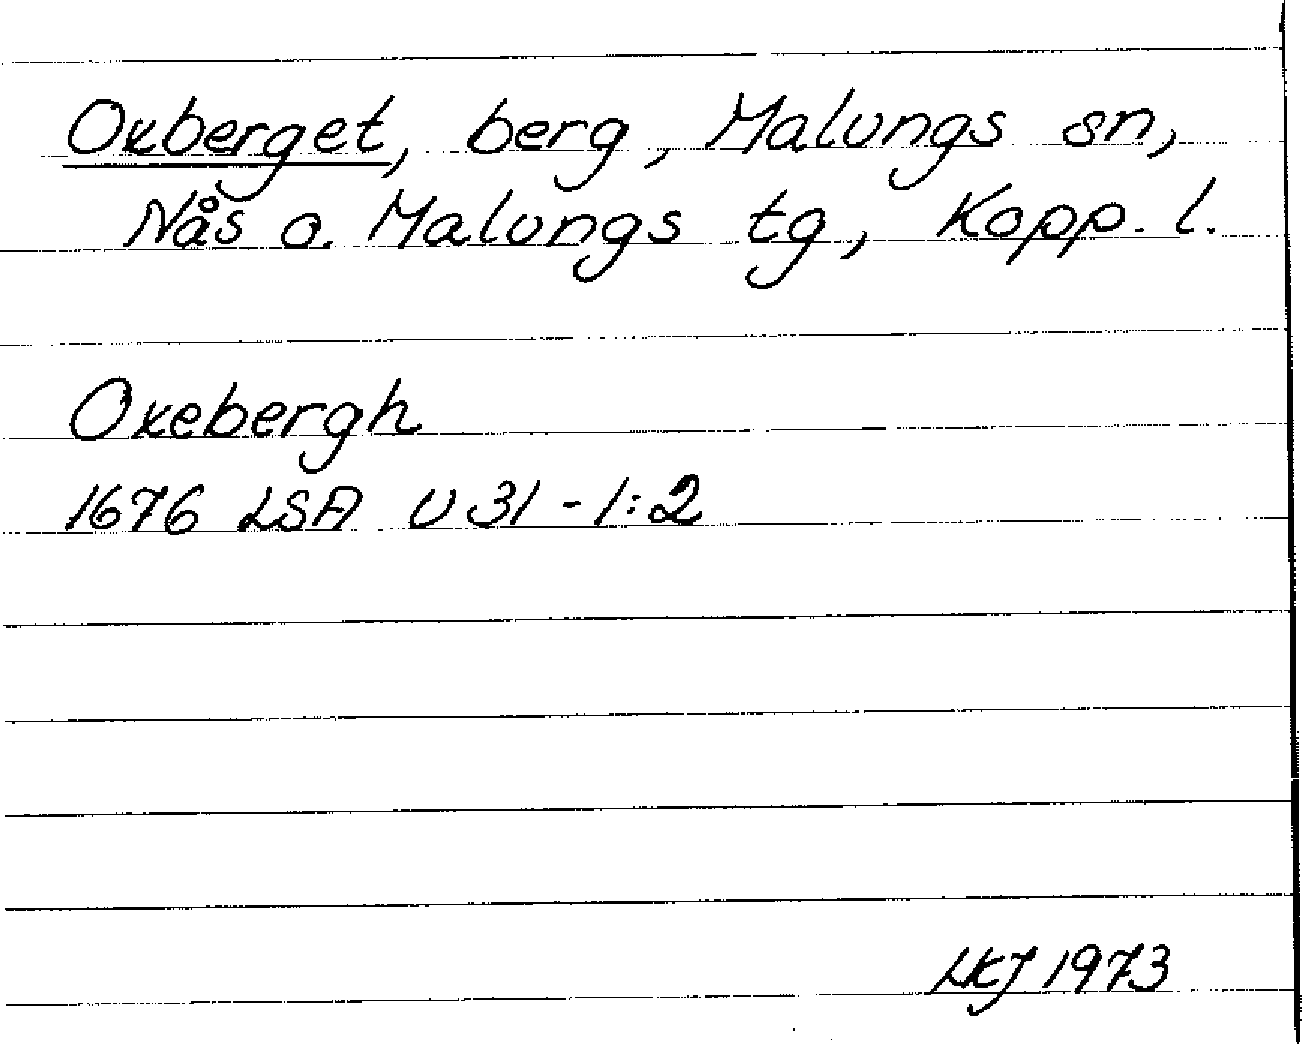 Oxberget, berg, Malungs sn,
Nås o. Malungs tg, Kopp. l.
Oxebergh
1676 LSA U 31 - 1:2
LKJ 1973